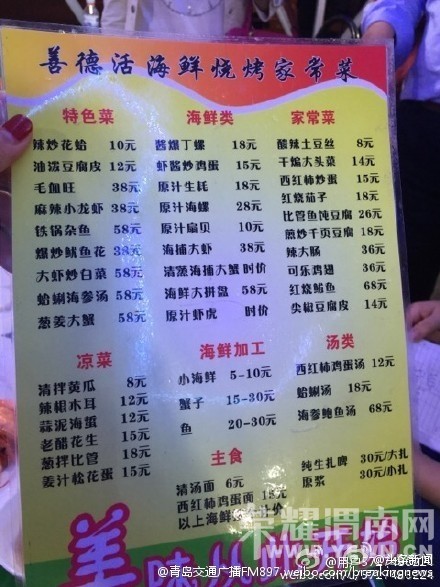 善德活海鲜烧烤家常菜
特色菜
辣炒花蛤 10元
油泼豆腐皮 12元
毛血旺 38元
麻辣小龙虾 38元
铁锅杂鱼 58元
爆炒鱿鱼花 38元
大虾炒白菜 58元
蛤蜊海参汤 58元
葱姜大蟹 58元
海鲜类
酱爆丁螺 18元
虾酱炒鸡蛋 15元
原汁生蚝 18元
原汁海螺 28元
原汁扇贝 10元
海捕大虾 38元
清蒸海捕大蟹 时价
海鲜大拼盘 58元
原汁虾虎 时价
家常菜
酸辣土豆丝 8元
干煸大头菜 14元
西红柿炒蛋 15元
红烧茄子 18元
比管鱼炖豆腐 26元
煎炒千页豆腐 18元
辣大肠 36元
可乐鸡翅 36元
红烧鲳鱼 68元
尖椒豆腐皮 14元
凉菜
清拌黄瓜 8元
辣根木耳 12元
蒜泥海蜇 12元
老醋花生 15元
葱拌比管 18元
姜汁松花蛋 15元
海鲜加工
小海鲜 5-10元
蟹子 15-30元
鱼 20-30元
汤类
西红柿鸡蛋汤 12元
蛤蜊汤 18元
海参鲍鱼汤 68元
主食
清汤面 6元
西红柿鸡蛋面
以上海鲜
纯生扎啤 30元/大扎
原浆 30元/小扎
美
荣耀渭南网
@青岛交通广播FM897
weibo.com/breakingnews